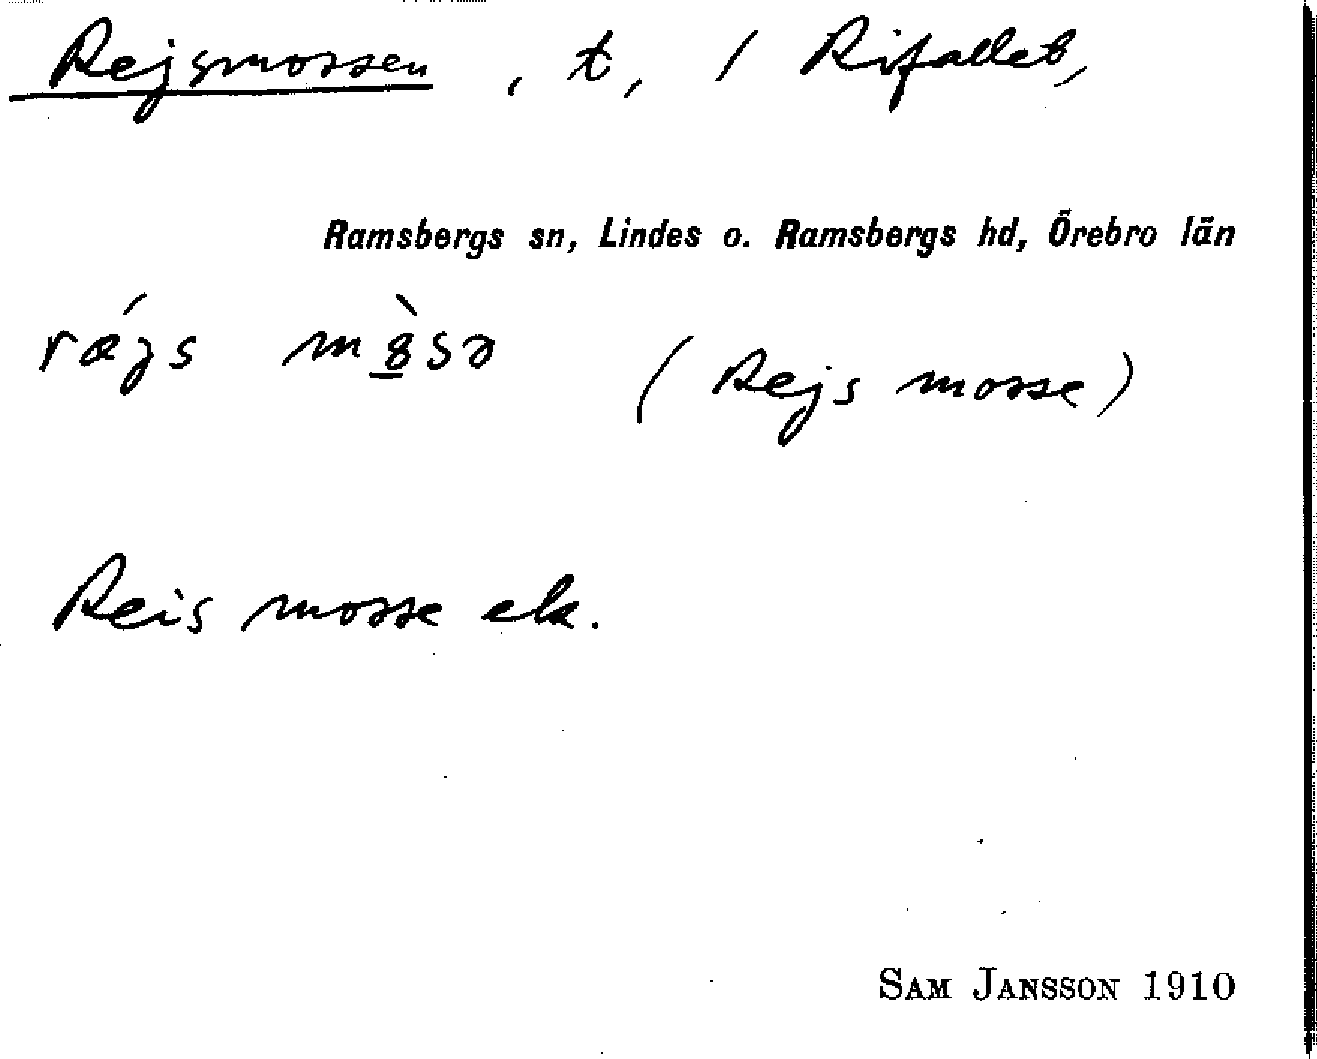 Rejsmossen, t, / Rifallet,
Ramsbergs sn, Lindes o. Ramsbergs hd, Örebro län
rǽjs mò̱sə (Rejs mosse)
Reis mosse ek.
SAM JANSSON 1910